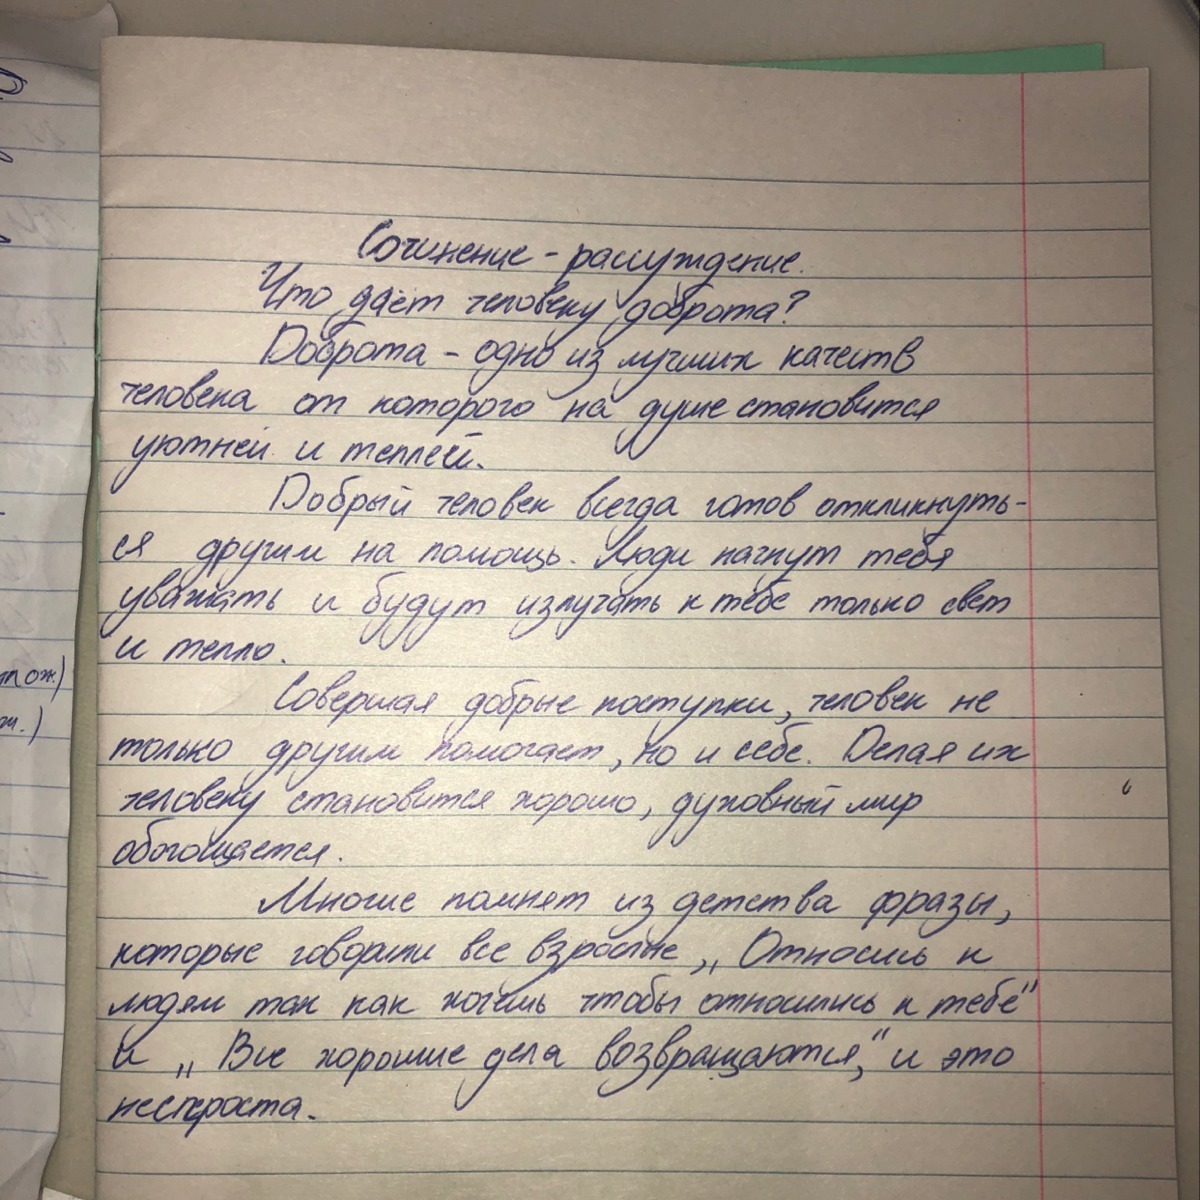 Сочинение - рассуждение.
Что даёт человеку доброта?
Доброта - одно из лучших качеств
человека от которого на душе становится
уютней и теплей.
Добрый человек всегда готов откликнуть-
ся другим на помощь. Люди начнут тебя
уважать и будут излучать к тебе только свет
и тепло.
Совершая добрые поступки, человек не
только другим помогает, но и себе. Делая их
человеку становится хорошо, духовный мир
обогощается.
Многие помнят из детства фразы,
которые говорили все взрослые, „Относись к
людям так как хочешь чтобы относились к тебе“
и „Все хорошие дела возвращаются,“ и это
неспроста.